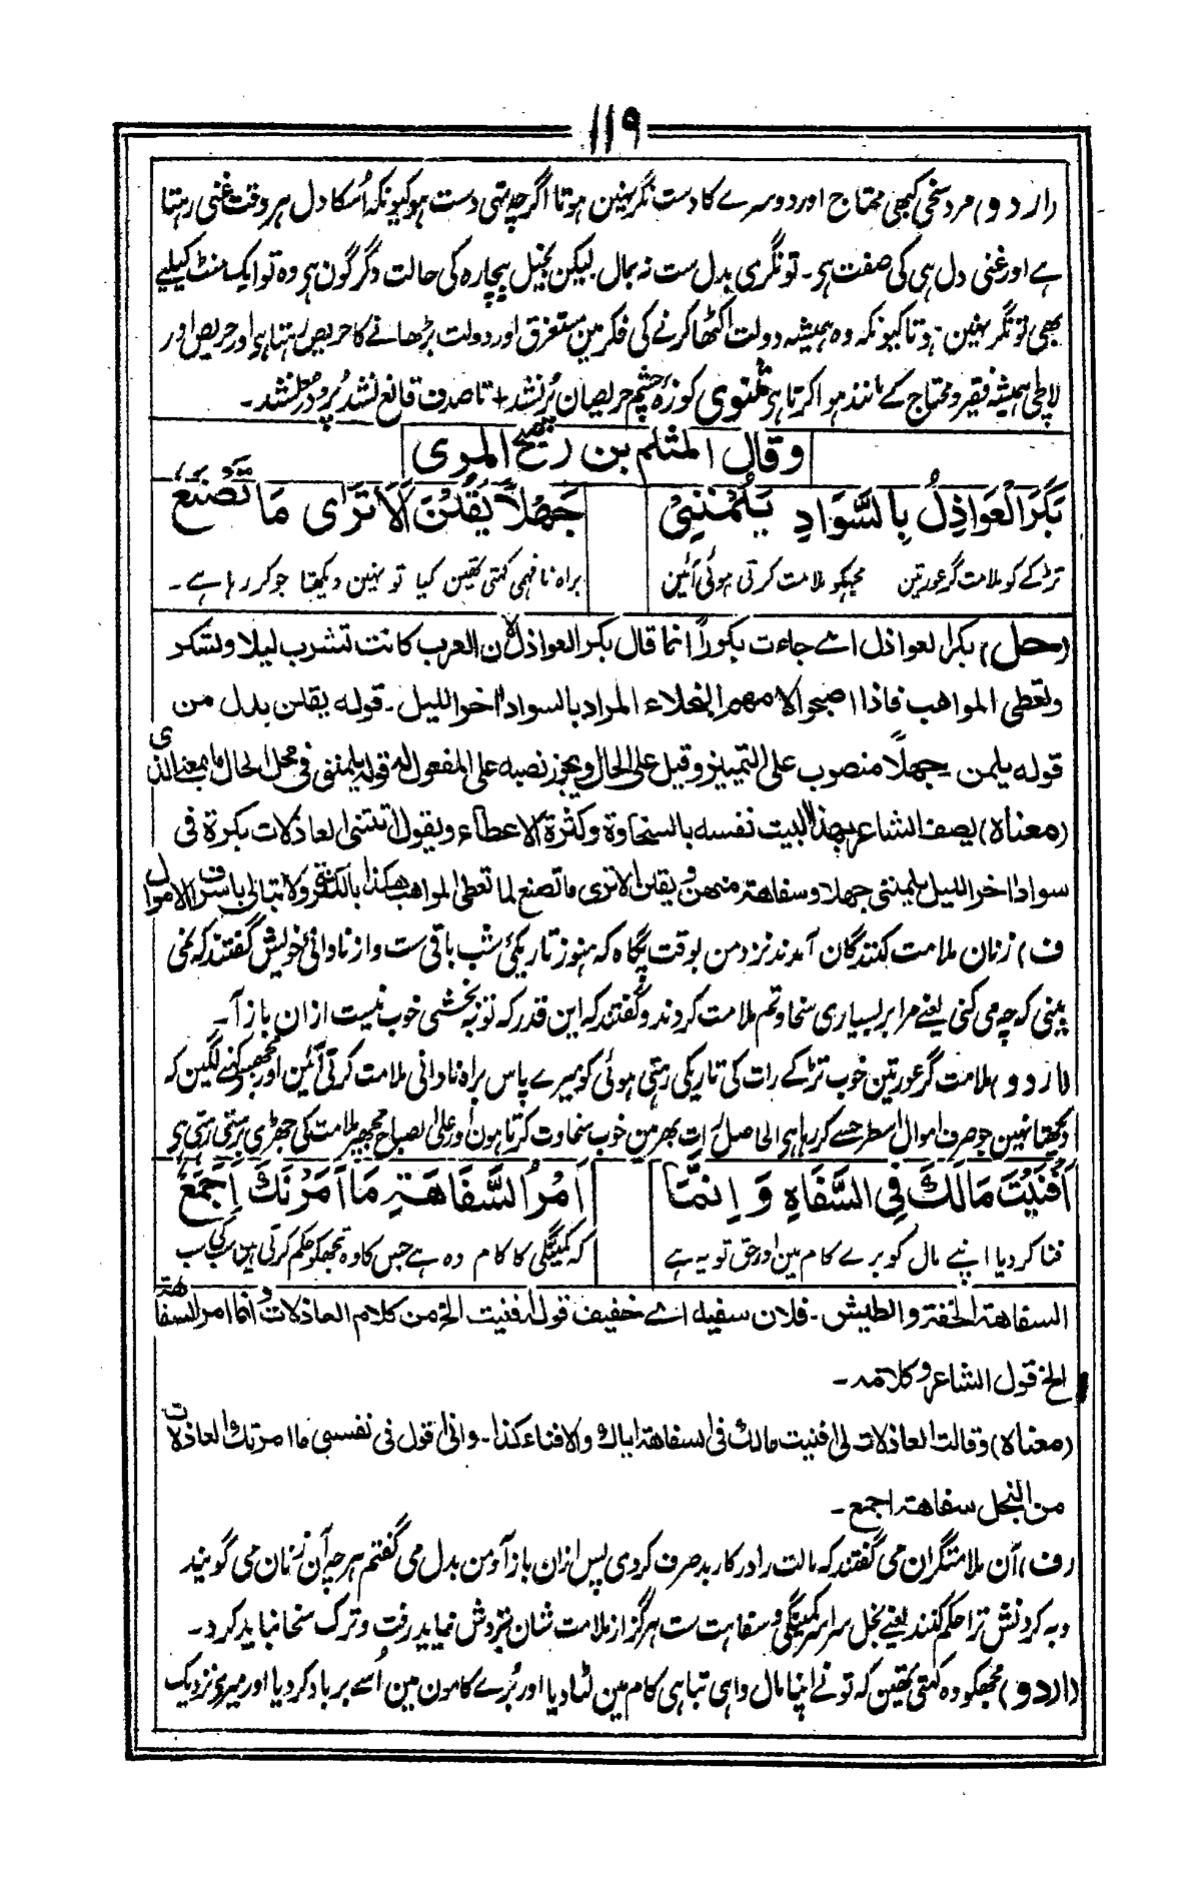 ۱۱۹
(اردو) مرد سخی کبھی محتاج اور دوسرے کا دست نگر نہین ہوتا اگرچہ تہی دست ہو کیونکہ اُسکا دل ہر وقت غنی رہتا
ہے اور غنی دل ہی کی صفت ہی۔ تونگری بدل ست نہ بمال لیکن بخیل بیچارہ کی حالت دگرگون ہی وہ تو ایک منٹ کیلیے
بھی تونگر نہین ہوتا کیونکہ وہ ہمیشہ دولت اکٹھا کرنے کی فکر مین مستغرق اور دولت بڑھانے کا حریص رہتا ہی اور حریص اور
لالچی ہمیشہ فقیر و محتاج کے مانند ہوا کرتا ہی مثنوی کوزۂ چشم حریصان پُر نشد + تا صدف قانع نشد پُر دُر نشد۔
وقال المثلم بن رياح المری
بَكَرَ الْعَوَاذِلُ بِالسَّوَادِ يَلُمْنَنِيْ
جَهْلًا يَقُلْنَ أَلَا تَرَى مَا تَصْنَعُ
تڑکے کو ملامت گر عورتین مجھکو ملامت کرتی ہوئی آئین
براہ نافہمی کہتی تھین کیا تو نہین دیکھتا جو کر رہا ہے۔
(حل) بکر العواذل اے جاءت بکوراً انما قال بکر العواذل لان العرب کانت تشرب لیلا وتسکر
وتعطی المواهب فاذا اصبحوا لامهم البخلاء المراد بالسواد اخر اللیل۔ قوله یقلن بدل من
قوله یلمن جهلًا منصوب علی التمییز وقیل علی الحال ویجوز نصبه علی المفعول له قوله یلمننی فی محل الحال ما بمعنی الذی
(معناہ) یصف الشاعر بهذا البیت نفسه بالسخاوة وکثرة الاعطاء ویقول اتتنی العاذلات بکرة فی
سواد اخر اللیل یلمننی جهلا وسفاهة منهن و یقلن الا تری ما تصنع لما تعطی المواهب هکذا بالکثرة ولا تبالی باسراف الاموال
ف) زنان ملامت کنندگان آمدند نزد من بوقت پگاہ کہ ہنوز تاریکیٔ شب باقی ست و از نادانیٔ خویش گفتند کہ نمی
بینی کہ چہ می کنی یعنے مرا بر بسیاری سخاوتم ملامت کردند و گفتند کہ این قدر کہ تو زر بخشی خوب نیست ازان باز آ۔
(اردو) ملامت گر عورتین خوب تڑکے رات کی تاریکی رہتی ہوئی کو میرے پاس براہ نادانی ملامت کرتی آئین اور مجھسے کہنے لگین کہ
دیکھتا نہین جو صرف اموال اسطرحسے کر رہا ہی الحاصل رات بھر مین خوب سخاوت کرتا ہون اور علی الصباح مجھپر ملامت کی جھڑی برستی رہتی ہی
أَفْنَيْتَ مَالَكَ فِي السَّفَاهِ وَ إِنَّمَا
أَمْرُ السَّفَاهَةِ مَا أَمَرْنَكَ أَجْمَعُ
فنا کر دیا اپنے مال کو برے کام مین اور حق تو یہ ہے
کہ کمینگی کا کام وہ ہے جس کا وہ تجھکو حکم کرتی ہین سب کی سب
السفاهة الخفة والطیش۔ فلان سفیه اے خفیف قوله افنیت الخ من کلام العاذلات و انما امر السفاهة
الخ قول الشاعر و کلامه۔
(معناہ) و قالت العاذلات لی افنیت مالك فی السفاهة ایاك والافناء کذا۔ وانی اقول فی نفسی ما امرتك العاذلات
من البخل سفاهة اجمع۔
(ف) آن ملامتگران می گفتند کہ مالت را در کار بد صرف کردی پس ازان باز آ و من بدل می گفتم ہر چہ آن زنان می گویند
و بہ کردنش ترا حکم کنند یعنے بخل سراسر کمینگی و سفاہت ست ہرگز از ملامت شان نزدش نباید رفت و ترک سخا نباید کرد۔
(اردو) مجھکو وہ کہتی تھین کہ تو نے اپنا مال واہی تباہی کام مین لٹا دیا اور بُرے کامون مین اُسے برباد کر دیا اور میرے نزدیک